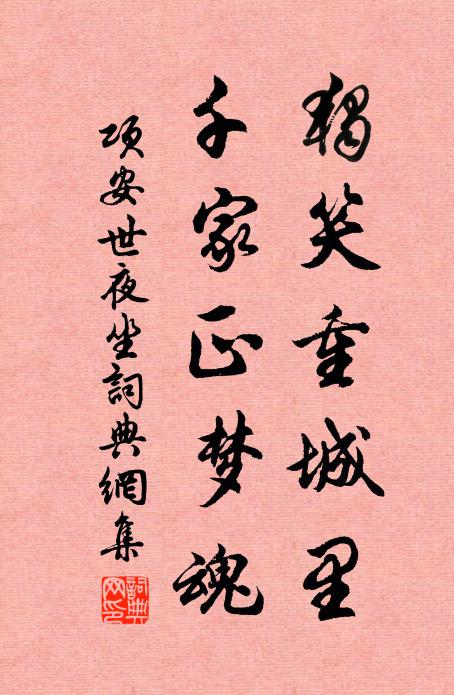 獨笑重城里
千家正梦魂
項安世夜坐詞典網集
詞典網印